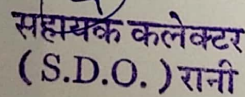 सहायक कलेक्टर
(S.D.O.) रानी